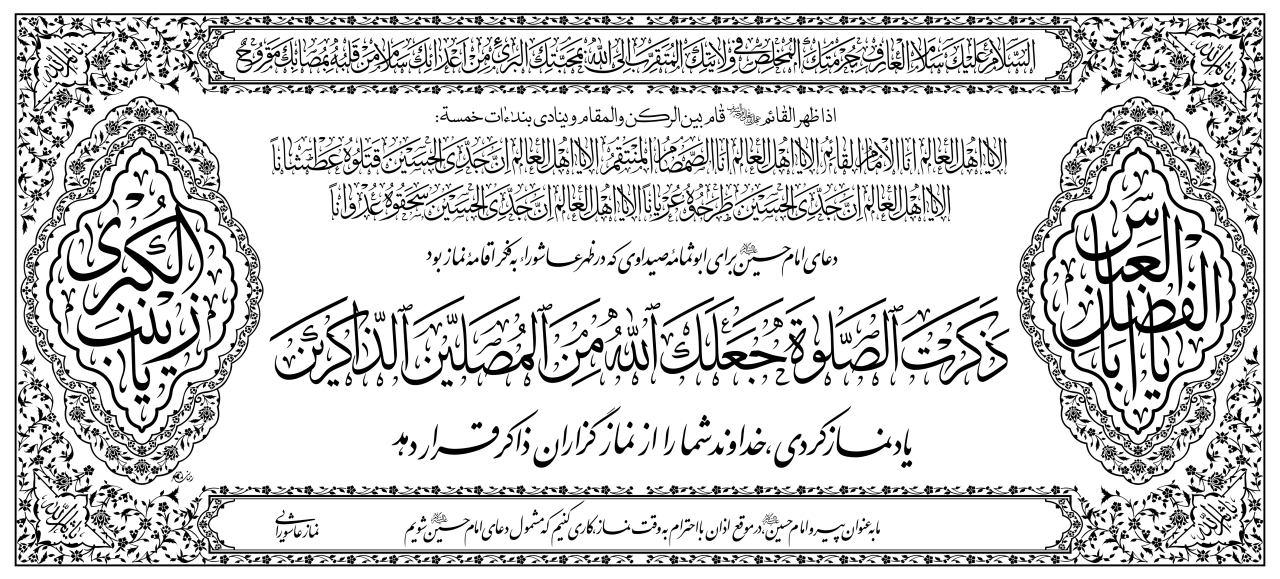 السَّلامُ عَلَيْكَ سَلامَ الْعارِفِ بِحُرْمَتِكَ الْمُخْلِصِ في وَلايَتِكَ الْمُتَقَرِّبِ إِلَى اللهِ بِمَحَبَّتِكَ الْبَرِيءِ مِنْ أَعْدائِكَ سَلامَ مَنْ قَلْبُهُ بِمُصابِكَ مَقْرُوحٌ
اذا ظهر القائم قام بین الرکن والمقام وینادی بنداءات خمسة:
الا یا اهل العالم انا الامام القائم الا یا اهل العالم انا الصمصام المنتقم الا یا اهل العالم ان جدی الحسین قتلوه عطشانا
الا یا اهل العالم ان جدی الحسین طرحوه عریانا الا یا اهل العالم ان جدی الحسین سحقوه عدوانا
دعای امام حسین برای ابوثمامهٔ صیداوی که در ظهر عاشورا، به فکر اقامهٔ نماز بود
یا اباالفضل العباس
یا زینب الکبری
ذَکَرْتَ الصَّلوةَ جَعَلَكَ اللهُ مِنَ المُصَلّینَ الذّاکِرینَ
یاد نماز کردی، خداوند شما را از نمازگزاران ذاکر قرار دهد
ما به عنوان پیرو امام حسین، در موقع اذان با احترام به وقت نماز، کاری کنیم که مشمول دعای امام حسین شویم
نماز عاشورایی